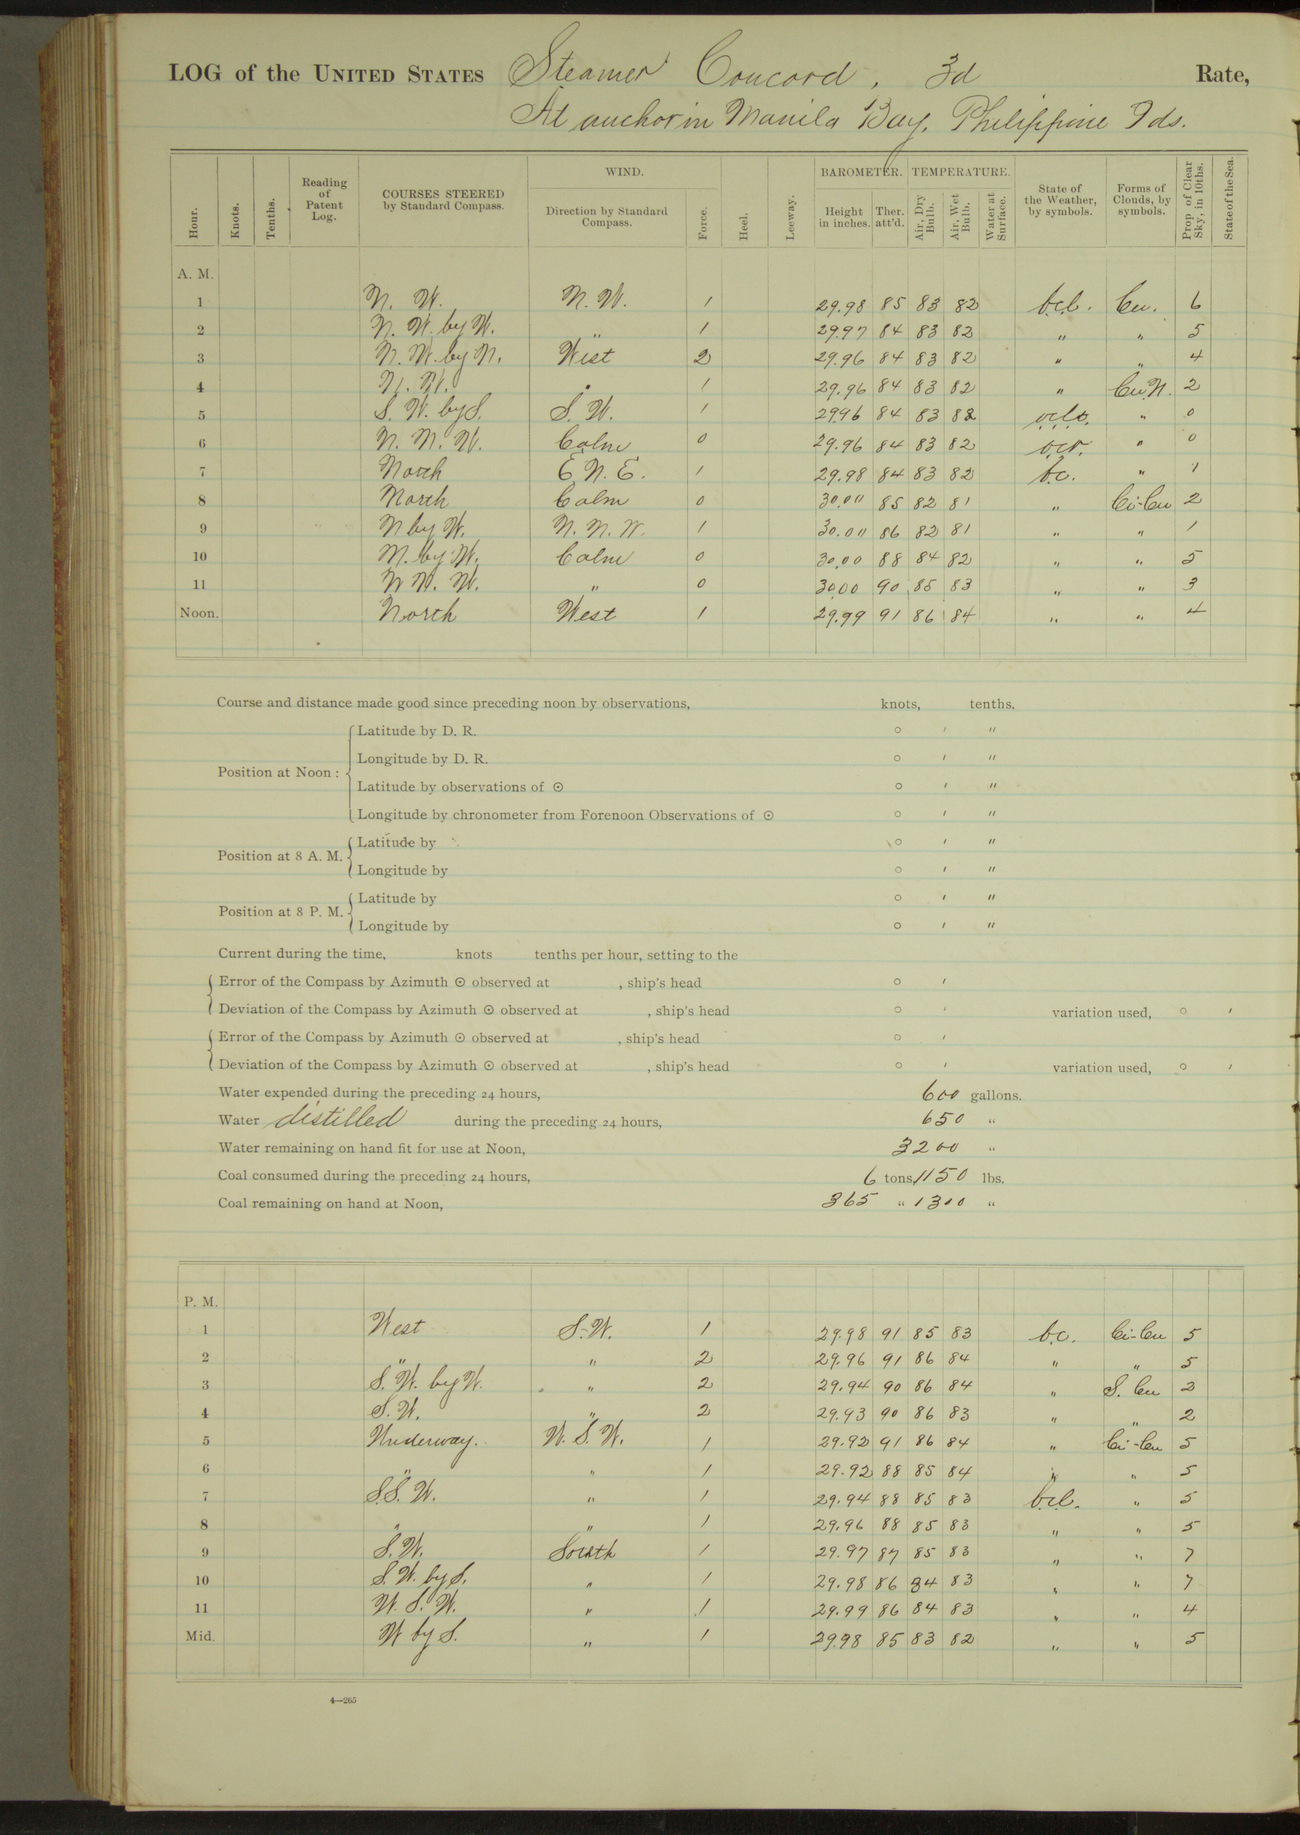 LOG of the UNITED STATES Steamer Concord, 3d Rate,
At anchor in Manila Bay, Philippine Ids.
Hour. Knots. Tenths. Reading of Patent Log. COURSES STEERED by Standard Compass. WIND. Direction by Standard Compass. Force. Heel. Leeway. BAROMETER. Height in inches. Ther. att'd. TEMPERATURE. Air, Dry Bulb. Air, Wet Bulb. Water at Surface. State of the Weather, by symbols. Forms of Clouds, by symbols. Prop. of Clear Sky, in 10ths. State of the Sea.
A. M.
1 N. W. N. W. 1 29.98 85 83 82 b.c.l. Cu. 6
2 N. W. by W. " 1 29.97 84 83 82 " " 5
3 N. W. by N. West 2 29.96 84 83 82 " " 4
4 N. W. " 1 29.96 84 83 82 " Cu.N. 2
5 S. W. by S. S. W. 1 29.96 84 83 82 " 0
6 N. N. W. Calm 0 29.96 84 83 82 o.c.r. " 0
7 North E. N. E. 1 29.98 84 83 82 b.c. " 1
8 North Calm 0 30.01 85 82 81 " Ci-Cu 2
9 N by W. N. N. W. 1 30.01 86 82 81 " " 1
10 N. by W. Calm 0 30.00 88 84 82 " " 5
11 N N. W. " 0 30.00 90 85 83 " " 3
Noon. North West 1 29.99 91 86 84 " " 4
Course and distance made good since preceding noon by observations, knots, tenths.
Position at Noon: Latitude by D. R. ° ′ ″
Longitude by D. R. ° ′ ″
Latitude by observations of ☉ ° ′ ″
Longitude by chronometer from Forenoon Observations of ☉ ° ′ ″
Position at 8 A. M. Latitude by ° ′ ″
Longitude by ° ′ ″
Position at 8 P. M. Latitude by ° ′ ″
Longitude by ° ′ ″
Current during the time, knots tenths per hour, setting to the
Error of the Compass by Azimuth ☉ observed at , ship's head ° ′
Deviation of the Compass by Azimuth ☉ observed at , ship's head ° ′ variation used, ° ′
Error of the Compass by Azimuth ☉ observed at , ship's head ° ′
Deviation of the Compass by Azimuth ☉ observed at , ship's head ° ′ variation used, ° ′
Water expended during the preceding 24 hours, 600 gallons.
Water distilled during the preceding 24 hours, 650 "
Water remaining on hand fit for use at Noon, 3200 "
Coal consumed during the preceding 24 hours, 6 tons, 1150 lbs.
Coal remaining on hand at Noon, 365 " 1300 "
P. M.
1 West S. W. 1 29.98 91 85 83 b.c. Ci-Cu 5
2 " " 2 29.96 91 86 84 " " 5
3 S. W. by W. " 2 29.94 90 86 84 " S. Cu 2
4 S. W. " 2 29.93 90 86 83 " " 2
5 Underway. W. S. W. 1 29.92 91 86 84 " Ci-Cu 5
6 " " 1 29.92 88 85 84 " " 5
7 S.S. W. " 1 29.94 88 85 83 b.c.l. " 5
8 " " 1 29.96 88 85 83 " " 5
9 S. W. South 1 29.97 87 85 83 " " 7
10 S. W. by S. " 1 29.98 86 84 83 " " 7
11 W. S. W. " 1 29.99 86 84 83 " " 4
Mid. W by S. " 1 29.98 85 83 82 " " 5
4—265